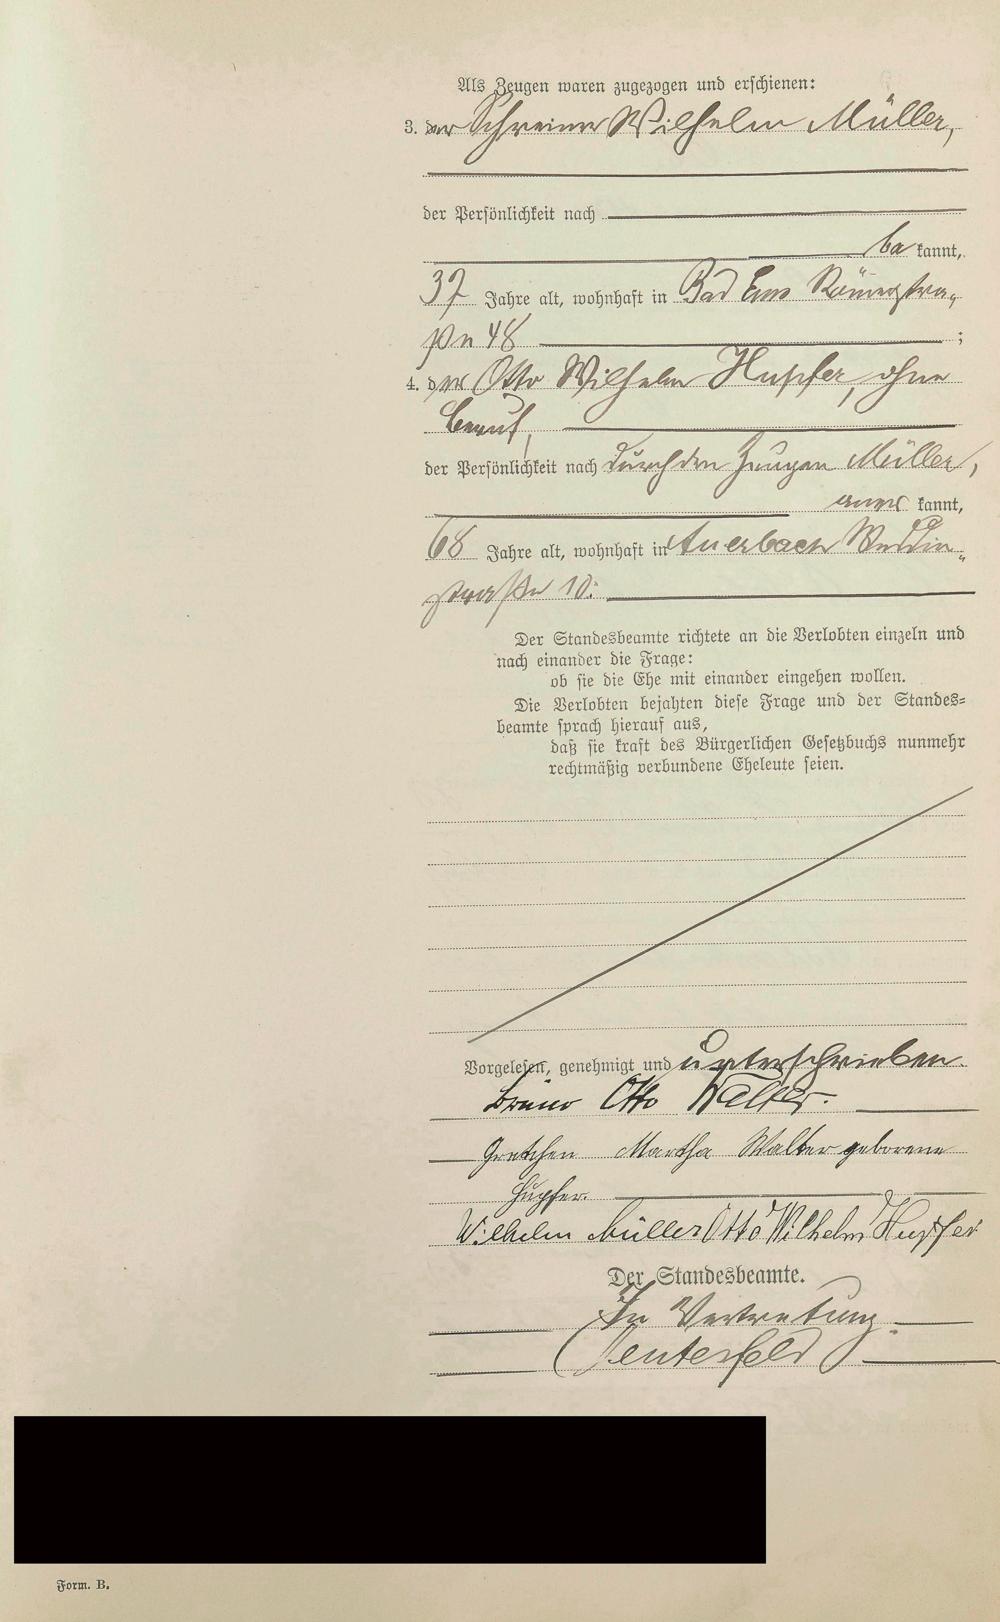 Als Zeugen waren zugezogen und erschienen:
3. der Schreiner Wilhelm Müller,
der Persönlichkeit nach
be kannt,
37 Jahre alt, wohnhaft in Bad Ems Römerstra-
ße 48 ;
4. der Otto Wilhelm Hupfer, ohne
Beruf,
der Persönlichkeit nach durch den Zeugen Müller,
aner kannt,
68 Jahre alt, wohnhaft in Auerbach
straße 10.
Der Standesbeamte richtete an die Verlobten einzeln und
nach einander die Frage:
ob sie die Ehe mit einander eingehen wollen.
Die Verlobten bejahten diese Frage und der Standes=
beamte sprach hierauf aus,
daß sie kraft des Bürgerlichen Gesetzbuchs nunmehr
rechtmäßig verbundene Eheleute seien.
Vorgelesen, genehmigt und unterschrieben.
Bruno Otto Walter.
Gretchen Martha Walter geborene
Hupfer.
Wilhelm Müller Otto Wilhelm Hupfer
Der Standesbeamte.
In Vertretung
Form. B.